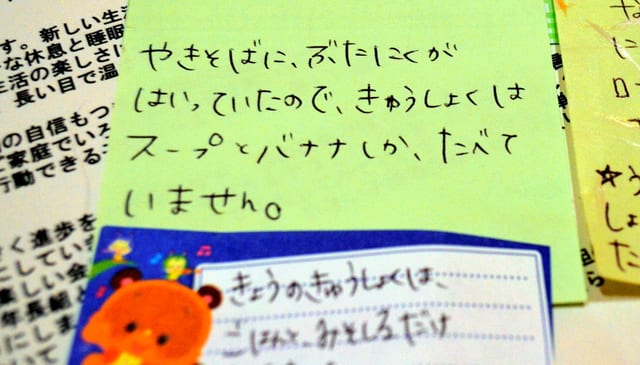 やきそばに、ぶたにくが
はいっていたので、きゅうしょくは
スープとバナナしか、たべて
いません。
きょうのきゅうしょくは、
ごはんと、みそしるだけ
す。新しい生活
な休息と睡眠
生活の楽しさに
長い目で温
の自信もつ
ご家庭でいろ
行動できるこ
く進歩を
にしてい
楽しい会
年長組と
にしま
いて
な
に
ロ
て
☆う
しょ
た